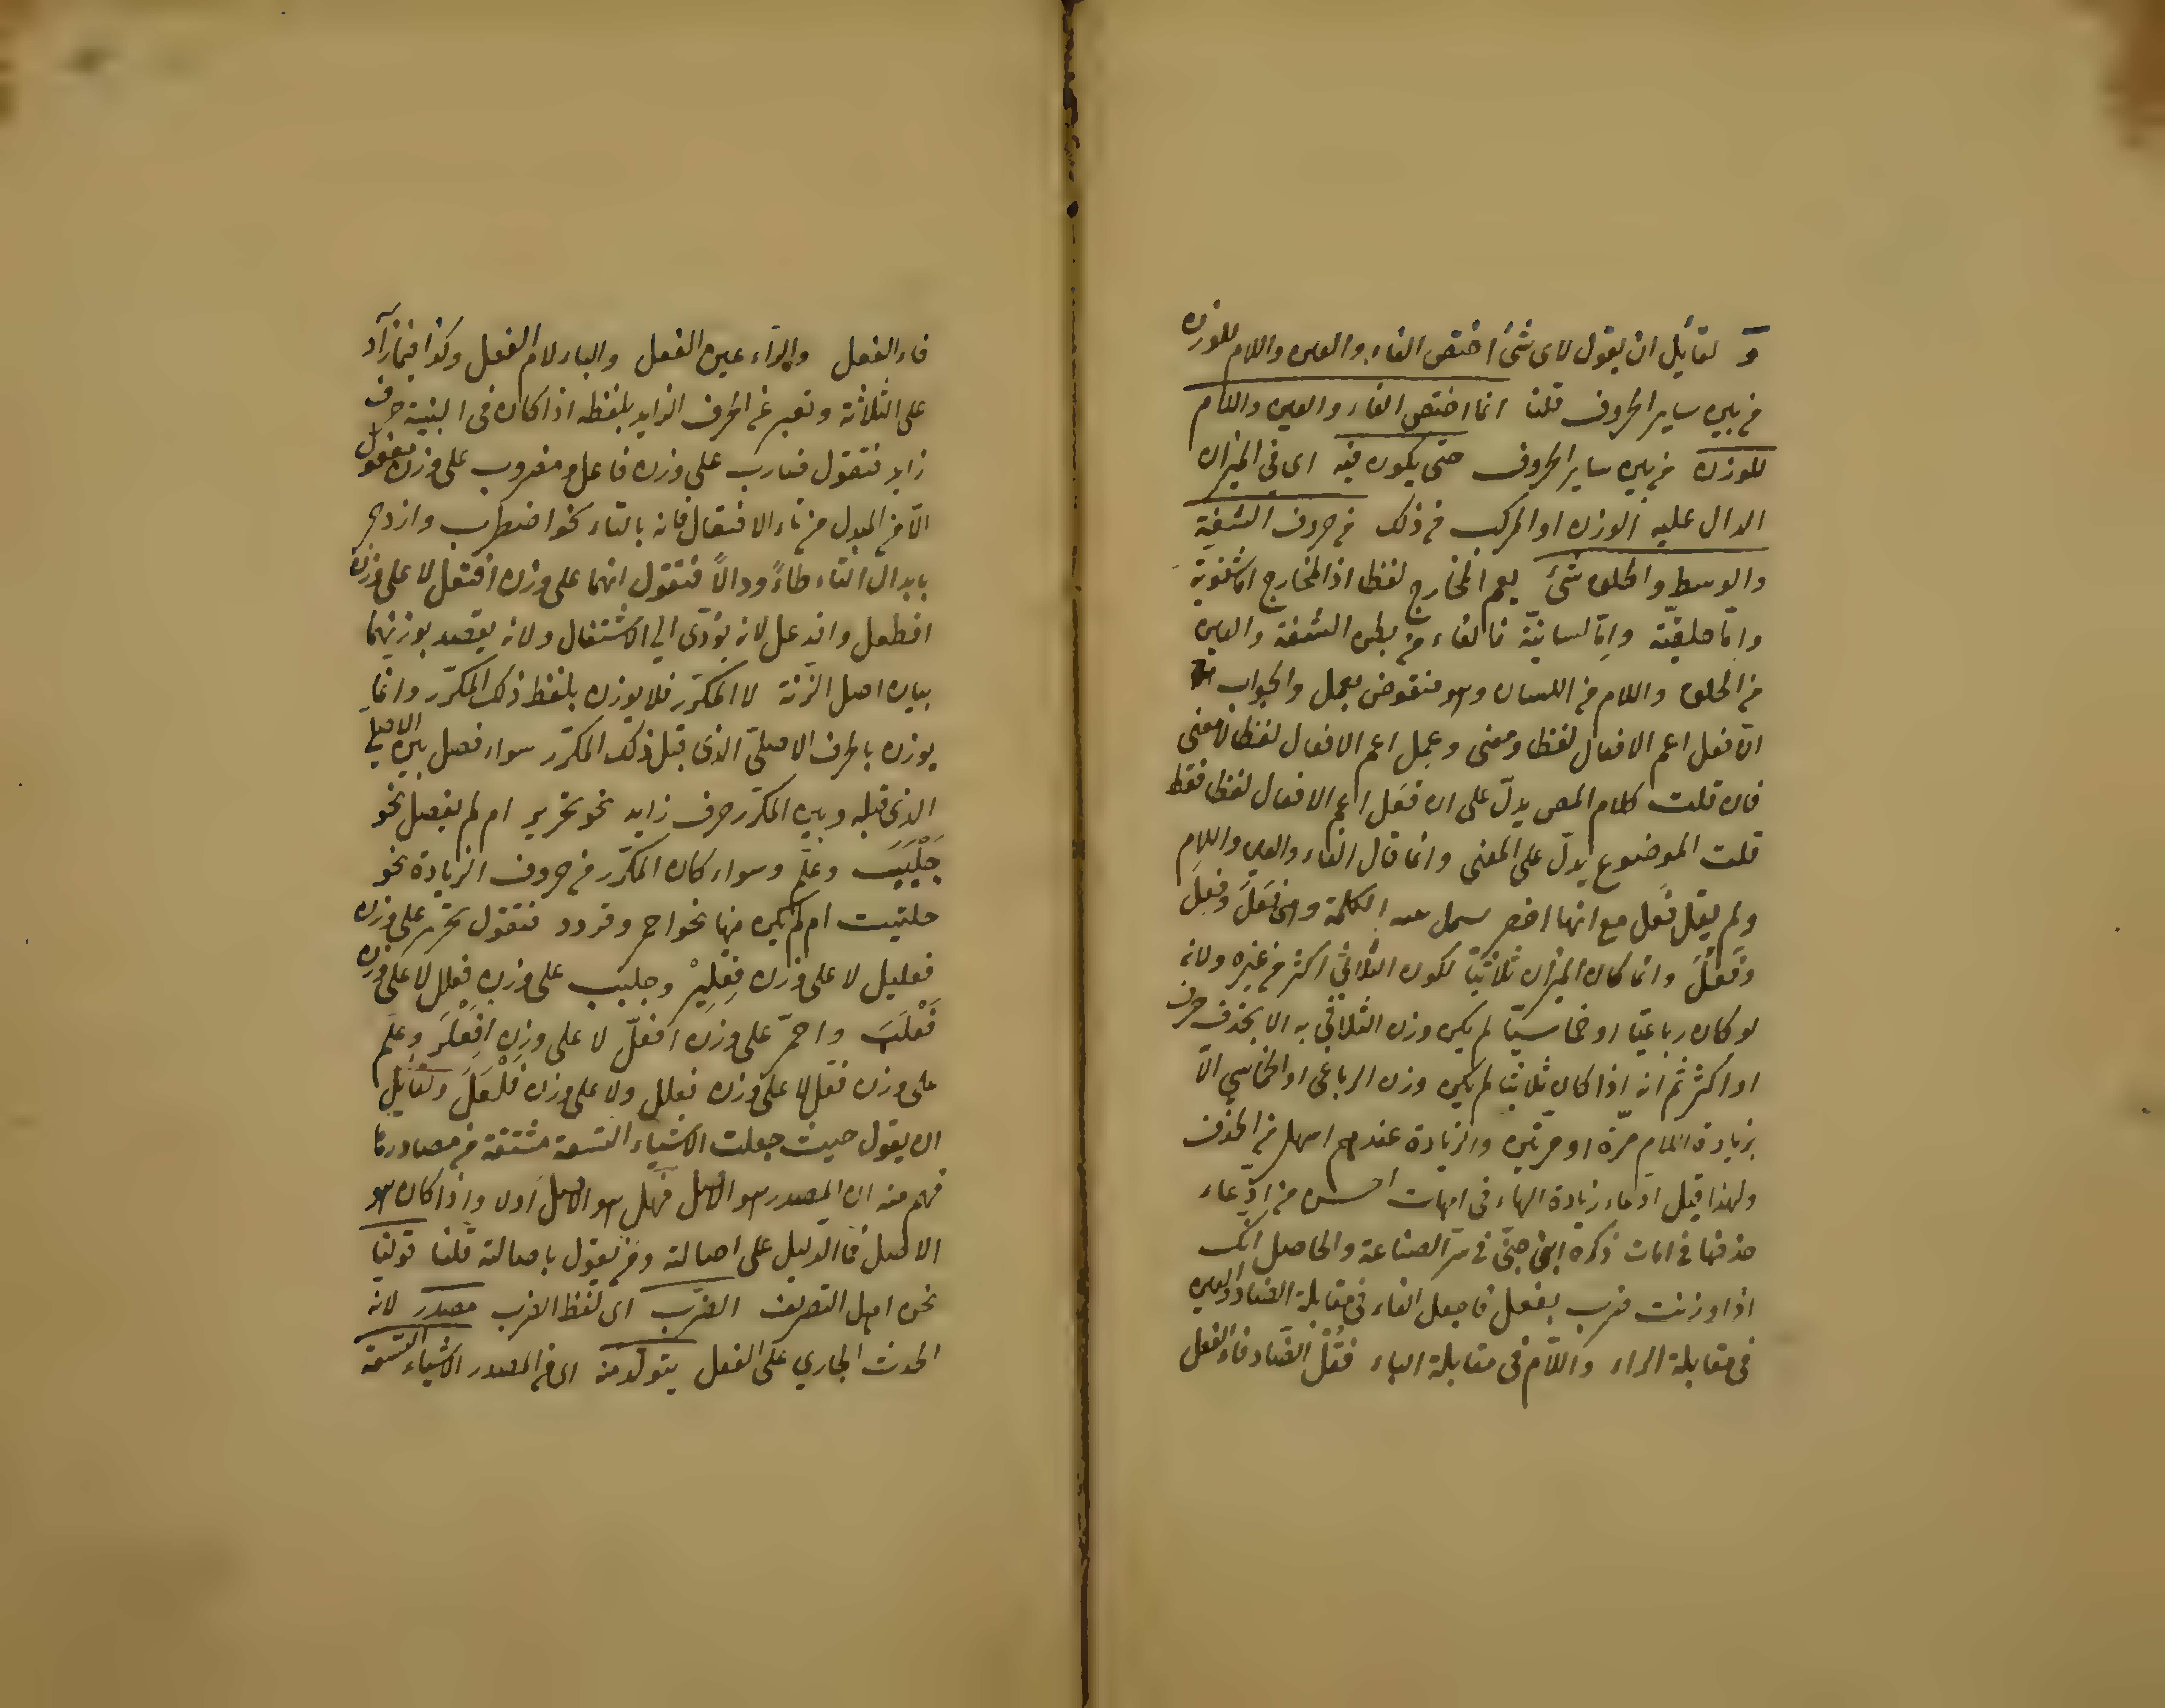 و لقائل ان يقول لاى شئ اختص الفاء والعين واللام للوزن
من بين ساير الحروف قلنا انما اختص الفاء والعين واللام
للوزن من بين ساير الحروف حتى يكون فيه اى فى الميزان
الدال عليه الوزن او المركب من ذلك من حروف الشفة
والوسط والحلق شئ يعم المخارج لفظا اذ المخارج اما شفوية
واما حلقية واما لسانية فالفاء من بطن الشفة والعين
من الحلق واللام من اللسان وهو منقوض بعمل والجواب
ان فعل اعم الافعال لفظا ومعنى وعمل اعم الافعال لفظا لا معنى
فان قلت كلام المص يدل على ان فعل اعم الافعال لفظا فقط
قلت الموضوع يدل على المعنى وانما قال الفاء والعين واللام
ولم يقل فعل مع انها اخصر الكلمة فَعَلَ وفَعِلَ
وفَعُلَ وانما كان الميزان ثلاثيا لكون الثلاثى اكثر من غيره ولانه
لو كان رباعيا او خماسيا لم يكن وزن الثلاثى به الا بحذف حرف
او اكثر ثم انه اذا كان ثلاثيا لم يكن وزن الرباعى او الخماسي الا
بزيادة اللام مرة او مرتين والزيادة عندهم اسهل من الحذف
ولهذا قيل ادعاء زيادة الهاء فى امهات احسن من ادعاء
حذفها فى امات ذكره ابن جنى فى سر الصناعة والحاصل انك
اذا وزنت ضرب بفعل فاجعل الفاء فى مقابلة الضاد والعين
فى مقابلة الراء واللام فى مقابلة الباء فقُلْ الضاد فاء الفعل
فاء الفعل والراء عين الفعل والباء لام الفعل وكذا فيما زاد
على الثلاثة وتعبر عن الحرف الزايد بلفظه اذا كان فى البنية حرف
زايد فتقول ضارب على وزن فاعل ومضروب على وزن مفعول
الا من المبدل من تاء الافتعال فانه بالتاء نحو اضطرب وازدجر
بابدال التاء طاءً ودالاً فتقول انهما على وزن افتعل لا على وزن
افطعل وافدعل لانه يؤدى الى الاستثقال ولانه يقصد بوزنهما
بيان اصل الزنة لا المكرر فلا يوزن بلفظ ذلك المكرر وانما
يوزن بالحرف الاصلى الذى قبل ذلك المكرر سواء فصل بين الاصلى
الذى قبله وبين المكرر حرف زايد نحو تحرير ام لم يفصل نحو
جَلْبَبَ وعلّم وسواء كان المكرر من حروف الزيادة نحو
حلتيت ام لم يكن منها نحو احمر وقردد فتقول تحرير على وزن
فعليل لا على وزن فِعْلِيرْ وجلبب على وزن فعلل لا على وزن
فَعْلَبَ واحمرّ على وزن افعلّ لا على وزن افِعْلَرَ وعلّم
على وزن فعّل لا على وزن فعلل ولا على وزن فَلْعَلَ ولقايل
ان يقول حيث جعلت الاشياء التسعة مشتقة من مصادرها
فهم منه ان المصدر هو الاصل فهل هو الاصل او لا واذا كان هو
الاصل فما الدليل على اصالة ومن يقول باصالته قلنا قولنا
نحن اهل التصريف الضرب اى لفظ الضرب مصدر لانه
الحدث الجاري على الفعل يتولد منه اى من المصدر الاشياء التسعة